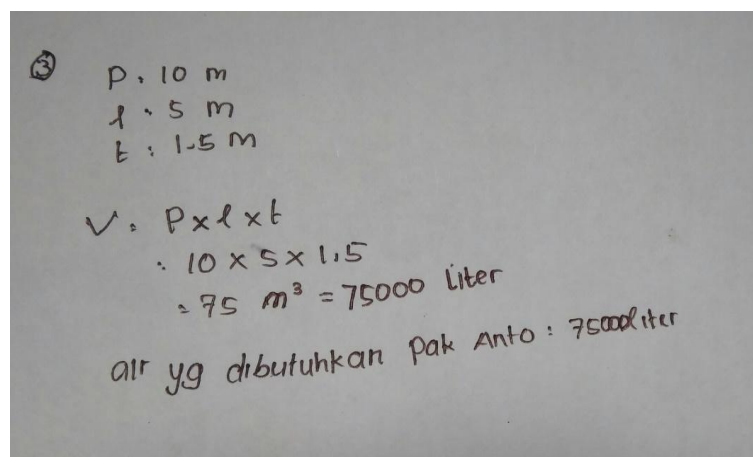 ③ P : 10 m
l : 5 m
t : 1.5 m
V = P x l x t
= 10 x 5 x 1,5
= 75 m³ = 75000 Liter
air yg dibutuhkan Pak Anto : 75000 liter